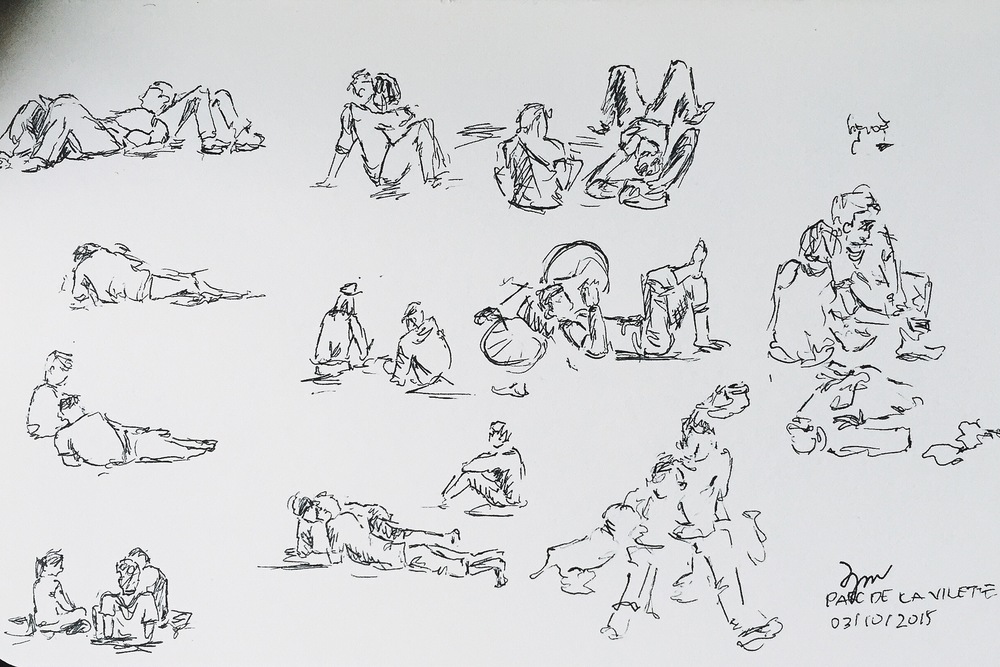 PARC DE LA VILETTE
03/10/2015